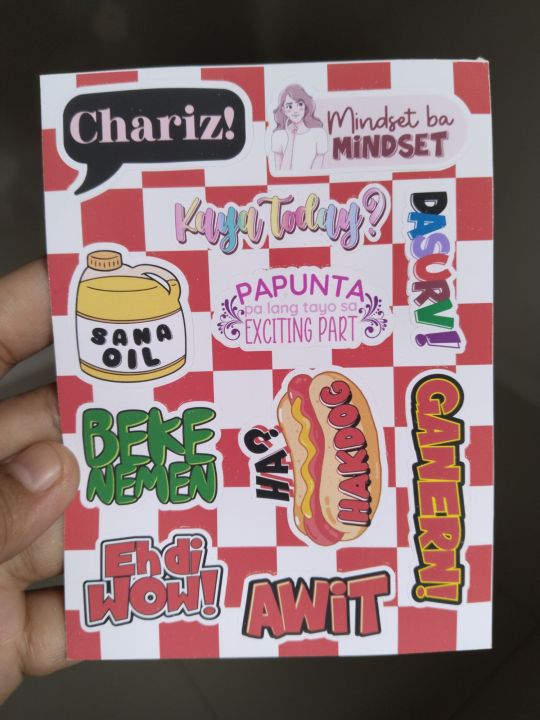 Chariz!
Mindset ba
MiNDSET
Kaya Today?
DASURV!
SANA
OIL
PAPUNTA
pa lang tayo sa
EXCITING PART
BEKE
NEMEN
HA?
HAKDOG
GANERN!
Eh di
WOW!
AWiT